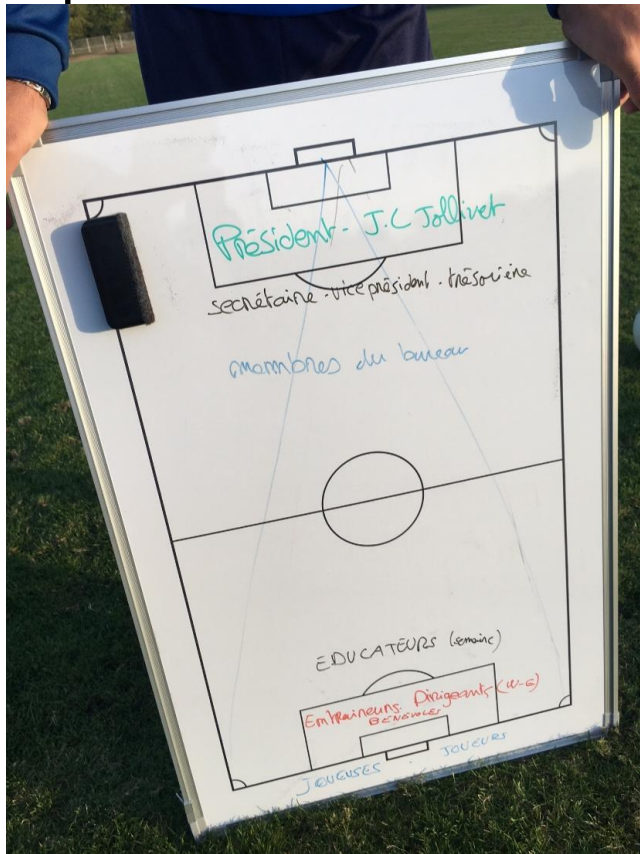 Président - J.C Jollivet
secrétaire - vice président - trésorière
membres du bureau
EDUCATEURS (semaine)
Entraineurs. Dirigeants (W-E)
BENEVOLES
JOUEUSES - JOUEURS